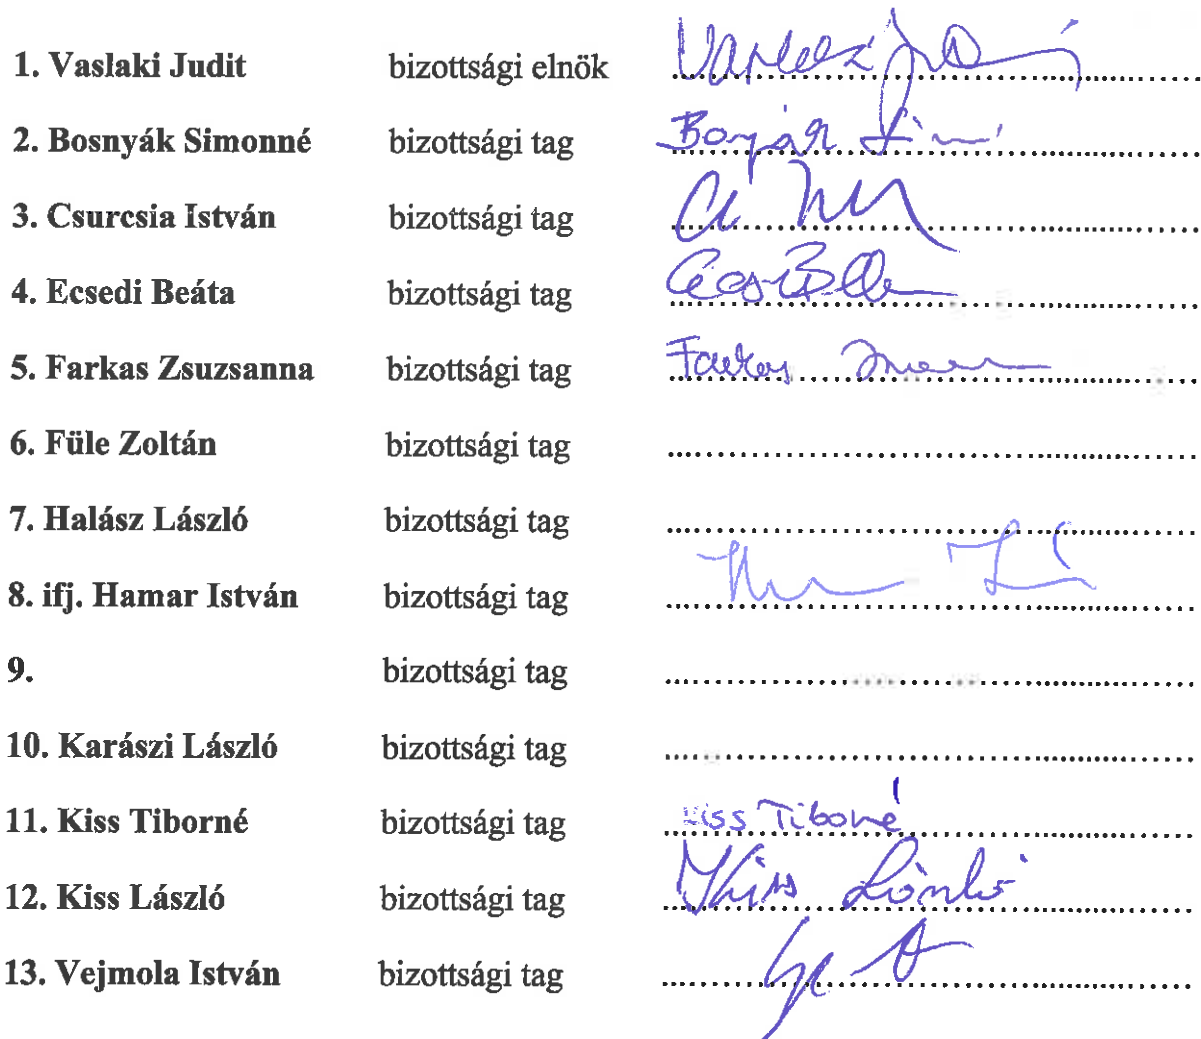 1. Vaslaki Judit bizottsági elnök
2. Bosnyák Simonné bizottsági tag
3. Csurcsia István bizottsági tag
4. Ecsedi Beáta bizottsági tag
5. Farkas Zsuzsanna bizottsági tag Farkas
6. Füle Zoltán bizottsági tag
7. Halász László bizottsági tag
8. ifj. Hamar István bizottsági tag
9. bizottsági tag
10. Karászi László bizottsági tag
11. Kiss Tiborné bizottsági tag Kiss Tiborné
12. Kiss László bizottsági tag Kiss László
13. Vejmola István bizottsági tag